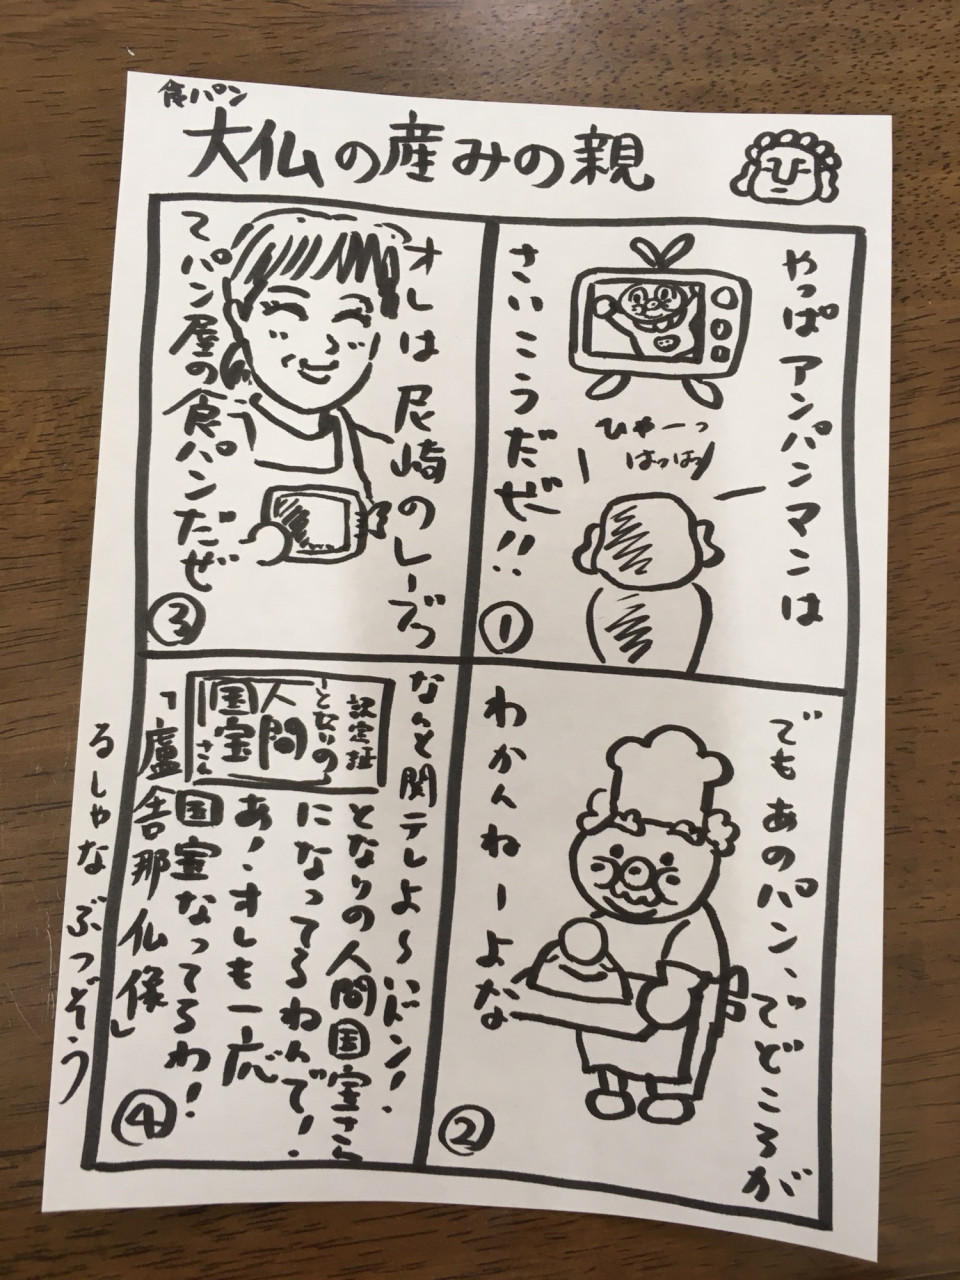 食パン
大仏の産みの親
やっぱアンパンマンは
さいこうだぜ!!
ひゃーっ
はっはっ
①
でもあのパン、でどころが
わかんねーよな
②
オレは尼崎のレーズ
てパン屋の食パンだぜ
③
なんと関テレよ〜いドン!
となりの人間国宝さん
になってるねんで!
あ!オレも一応
国宝なってるわ!
「盧舎那仏像」
るしゃな ぶつぞう
認定証
となりの
人間
国宝
さん
④